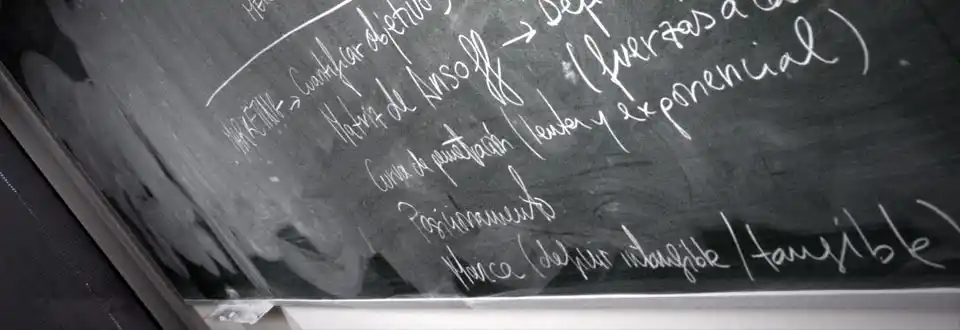 MARKETING → Cuantificar objetivos
Matriz de Ansoff → Def
(fuerzas a
Curva de penetración (lenta y exponencial)
Posicionamiento
Marca (definir intangible / tangible)